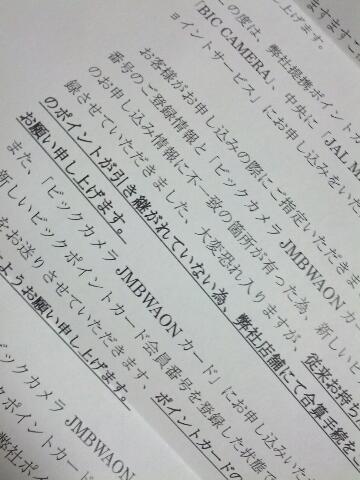 し上げます。
ますますご
の度は、弊社提携ポイントカ
「BIC CAMERA」、中央に「JAL M
ョイントサービス」にお申し込みをいた
お客様がお申し込みの際にご指定いただきま
番号のご登録情報と「ビックカメラ JMBWAON カー
のお申し込み情報に不一致の箇所が有った為、新しいビッ
録させていただきました。大変恐れ入りますが、従来お持ち
のポイントが引き継がれていない為、弊社店舗にて合算手続をこ
お願い申し上げます。
また、「ビックカメラ JMBWAON カード」にお申し込みいた
新しいビックポイントカード会員番号を登録した状態で
をお送りさせていただきます、ポイントカードの
ようお願い申し上げます。
ビックカメラ JMBWAON
クポイントカード
弊社ポイ